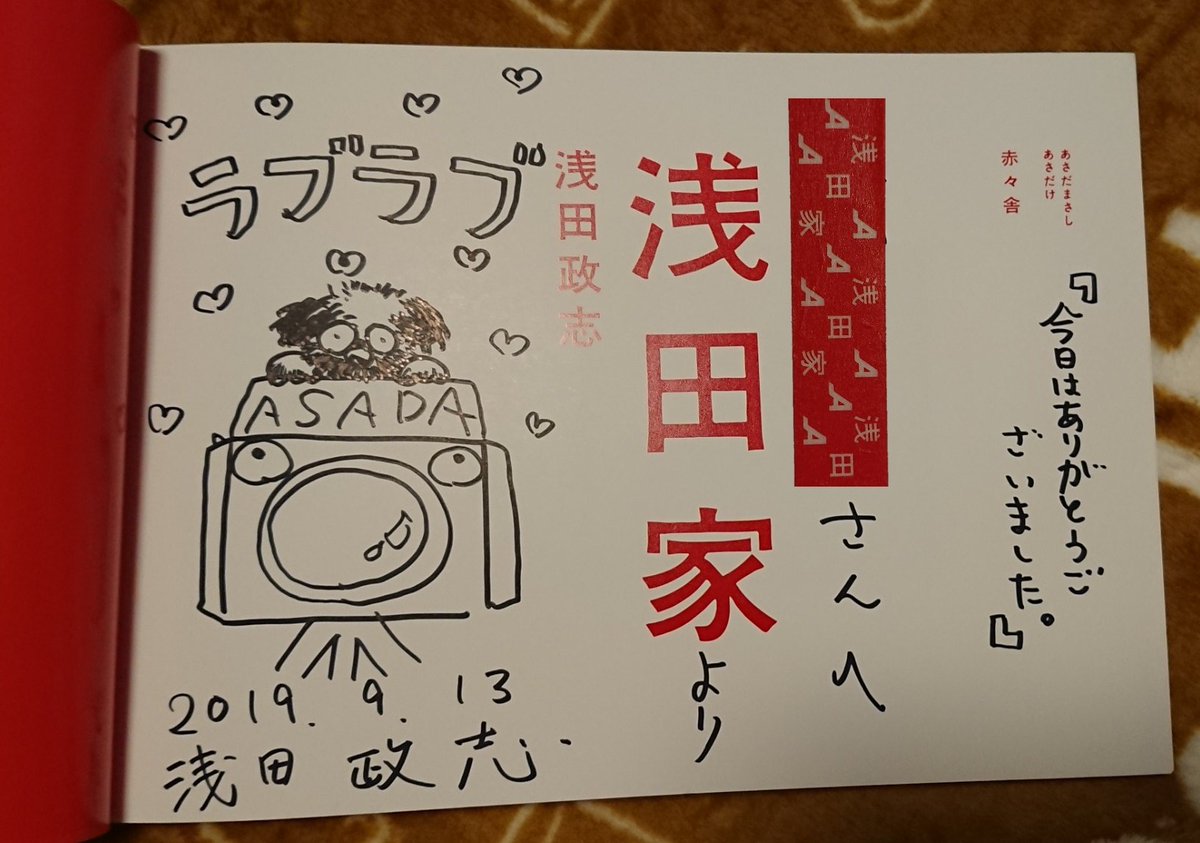 あさだまさし
あさだけ
赤々舎
『今日はありがとうご
ざいました。』
浅田A浅田A浅田
A家AA家AA
さんへ
浅田家より
浅田政志
ラブラブ
ASADA
2019.9.13
浅田政志